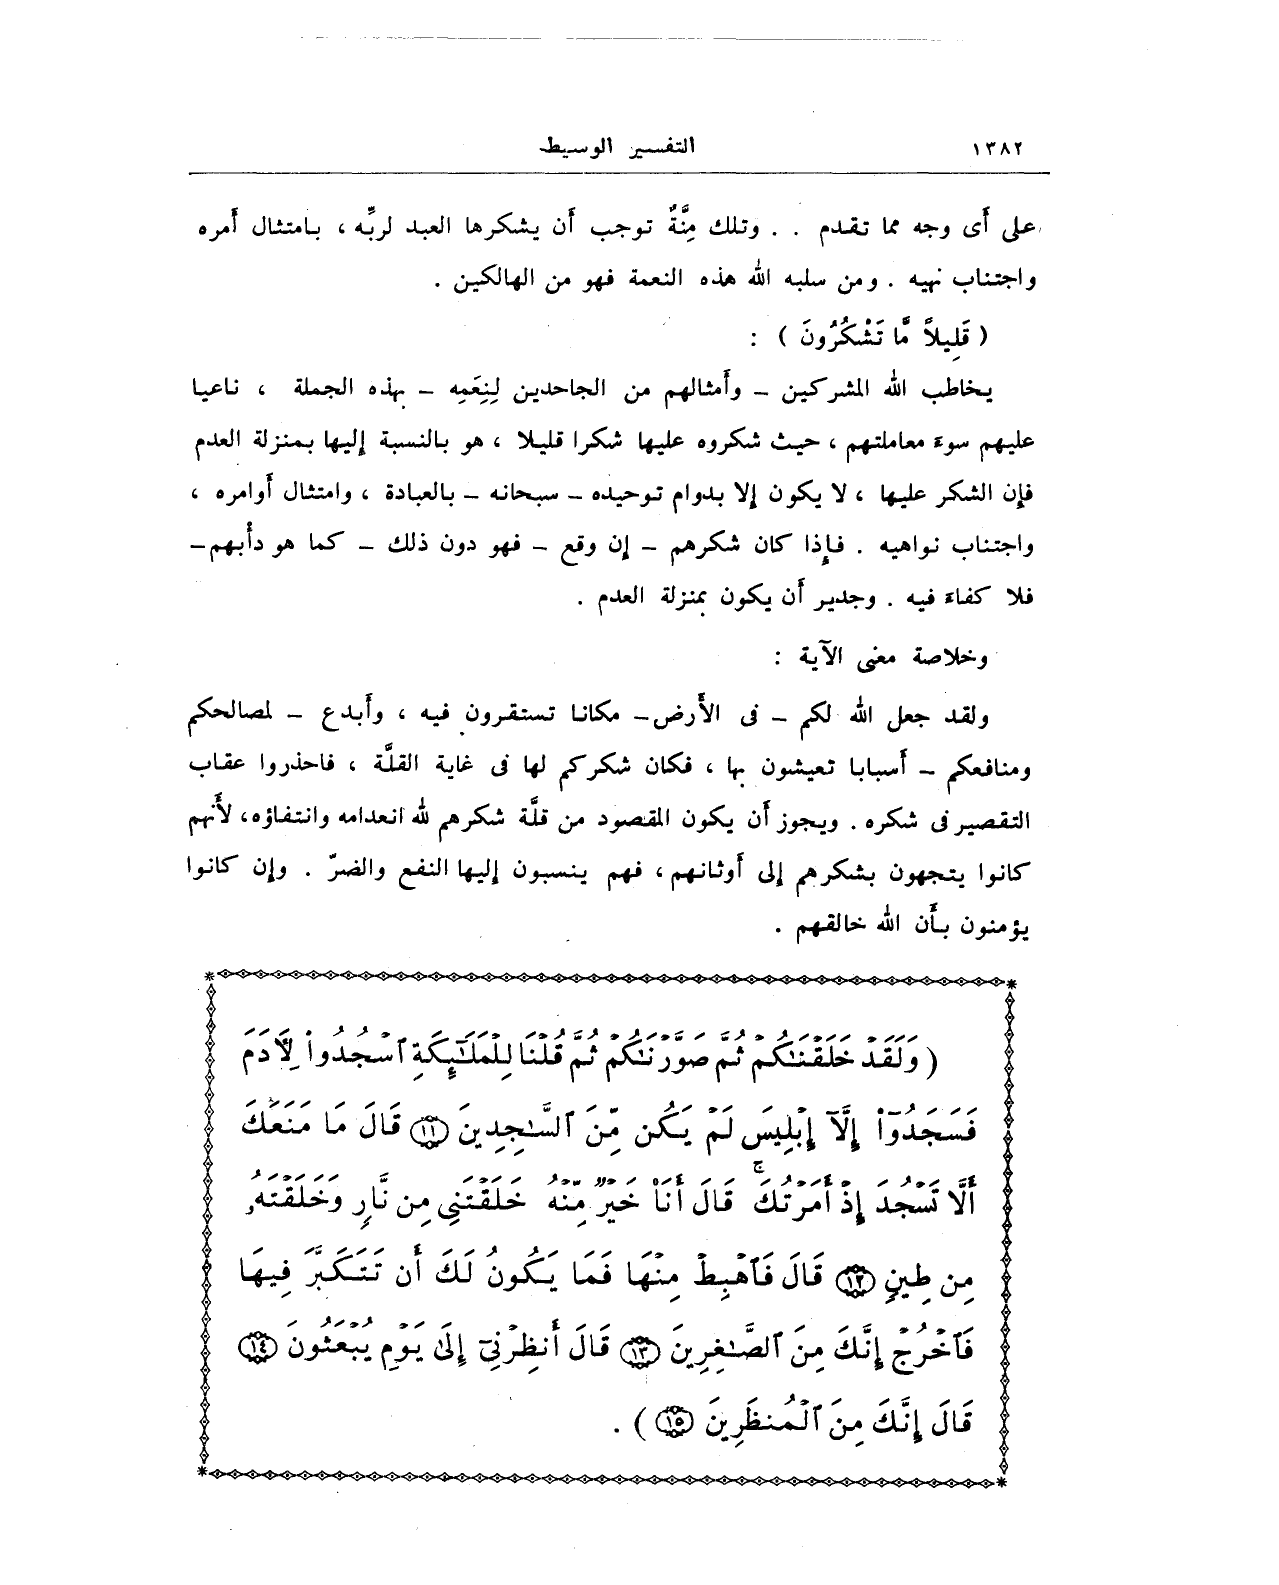 ١٣٨٢ التفسير الوسيط
على أَى وجه مما تقدم . . وتلك مِنَّةٌ توجب أَن يشكرها العبد لربِّه ، بامتثال أَمره
واجتناب نهيه . ومن سلبه الله هذه النعمة فهو من الهالكين .
( قَلِيلاً مَّا تَشْكُرُونَ ) :
يخاطب الله المشركين – وأَمثالهم من الجاحدين لِنِعَمِه – بهذه الجملة ، ناعيا
عليهم سوءَ معاملتهم ، حيث شكروه عليها شكرا قليلا ، هو بالنسبة إليها بمنزلة العدم
فإن الشكر عليها ، لا يكون إلا بدوام توحيده – سبحانه – بالعبادة ، وامتثال أَوامره ،
واجتناب نواهيه . فإِذا كان شكرهم – إن وقع – فهو دون ذلك – كما هو دأْبهم–
فلا كفاءَ فيه . وجدير أَن يكون بمنزلة العدم .
وخلاصة معنى الآية :
ولقد جعل الله لكم – فى الأَرض– مكانا تستقرون فيه ، وأَبدع – لمصالحكم
ومنافعكم – أَسبابا تعيشون بها ، فكان شكركم لها فى غاية القلَّة ، فاحذروا عقاب
التقصير فى شكره . ويجوز أَن يكون المقصود من قلَّة شكرهم لله انعدامه وانتفاؤه، لأَنهم
كانوا يتجهون بشكرهم إلى أَوثانهم ، فهم ينسبون إليها النفع والضرّ . وإن كانوا
يؤمنون بأَن الله خالقهم .
( وَلَقَدْ خَلَقْنَٰكُمْ ثُمَّ صَوَّرْنَٰكُمْ ثُمَّ قُلْنَا لِلْمَلَٰٓئِكَةِ ٱسْجُدُوا۟ لِأَدَمَ
فَسَجَدُوٓا۟ إِلَّآ إِبْلِيسَ لَمْ يَكُن مِّنَ ٱلسَّٰجِدِينَ ⑪ قَالَ مَا مَنَعَكَ
أَلَّا تَسْجُدَ إِذْ أَمَرْتُكَ ۚ قَالَ أَنَا۠ خَيْرٌ مِّنْهُ خَلَقْتَنِى مِن نَّارٍ وَخَلَقْتَهُۥ
مِن طِينٍ ⑫ قَالَ فَٱهْبِطْ مِنْهَا فَمَا يَكُونُ لَكَ أَن تَتَكَبَّرَ فِيهَا
فَٱخْرُجْ إِنَّكَ مِنَ ٱلصَّٰغِرِينَ ⑬ قَالَ أَنظِرْنِىٓ إِلَىٰ يَوْمِ يُبْعَثُونَ ⑭
قَالَ إِنَّكَ مِنَ ٱلْمُنظَرِينَ ⑮ ) .